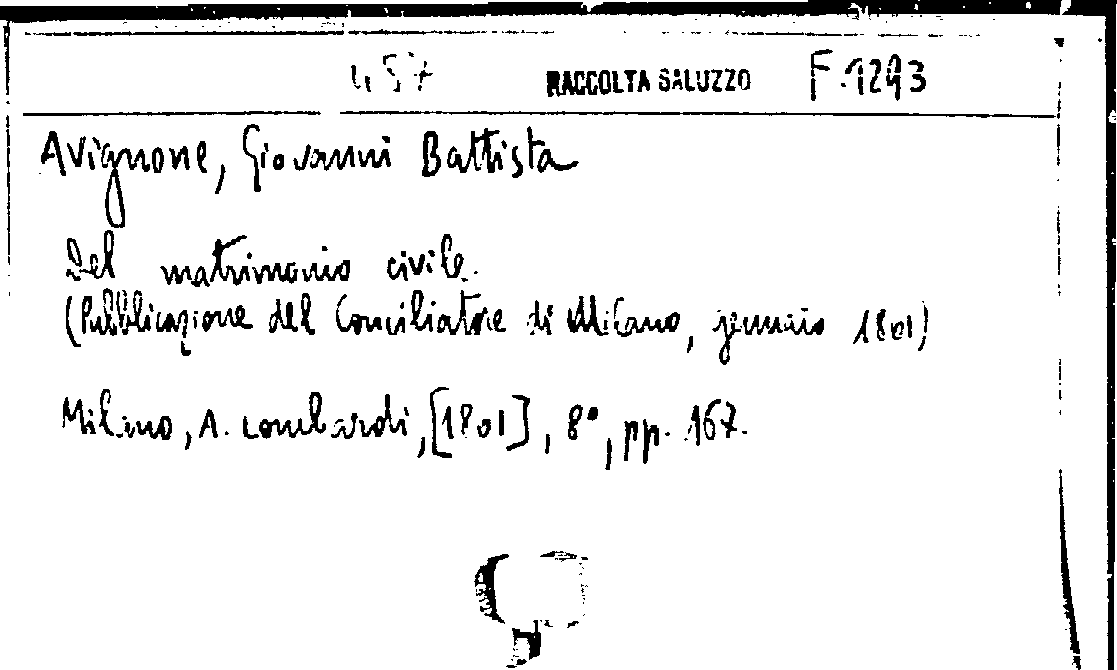 457 RACCOLTA SALUZZO F.1293
Avignone, Giovanni Battista
Del matrimonio civile.
(Pubblicazione del Conciliatore di Milano, gennaio 1801)
Milano, A. Lombardi, [1801], 8°, pp. 167.